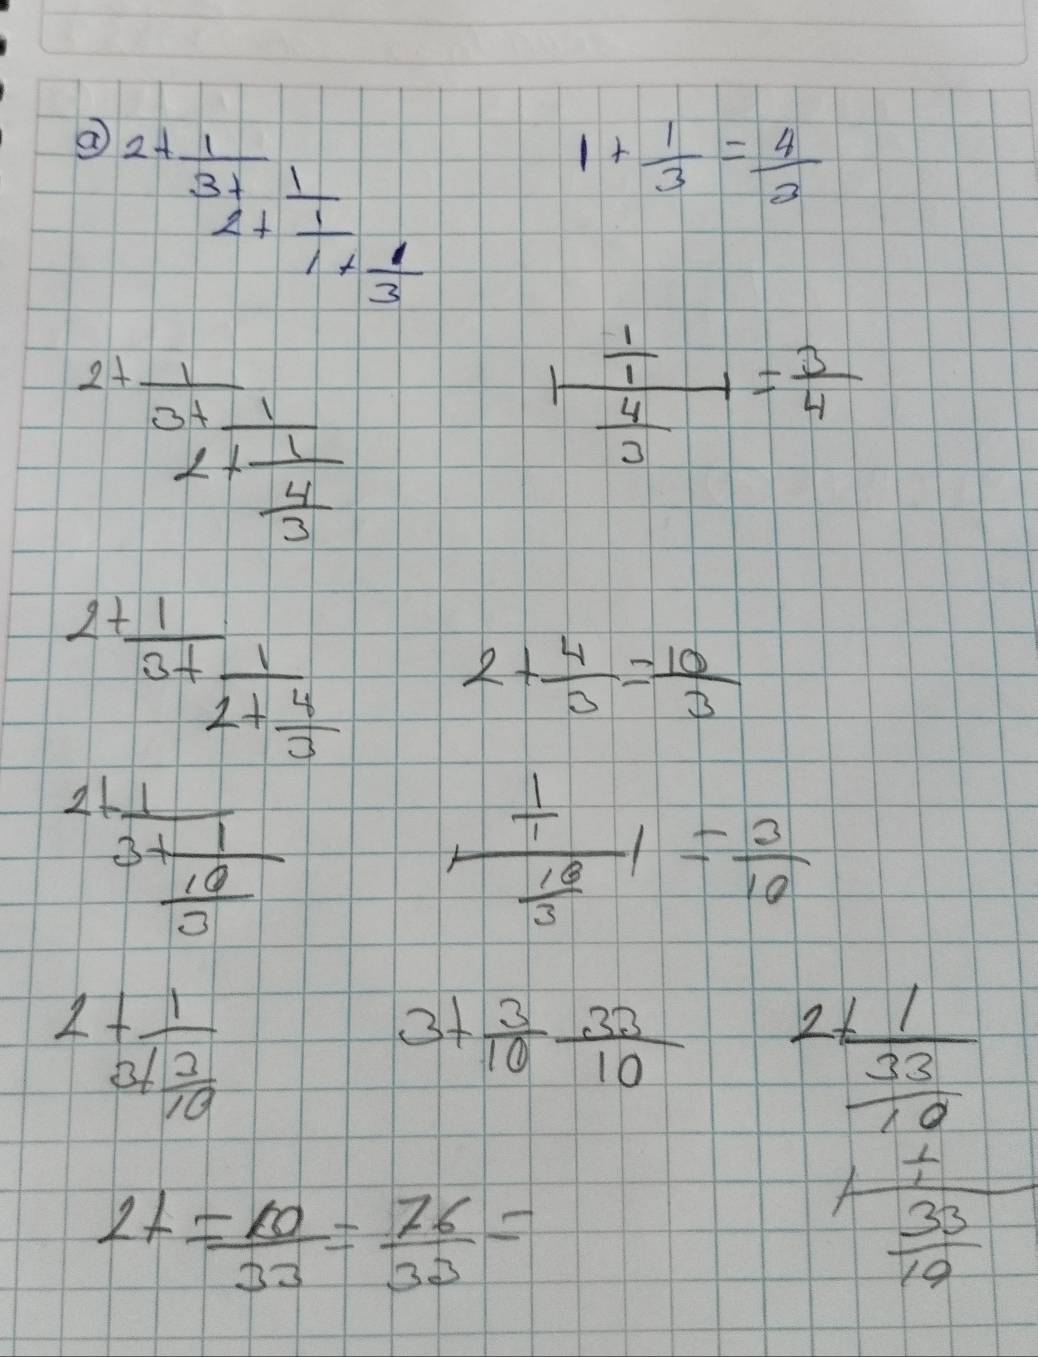 a) 2 + 1
3 + 1
2 + 1
1 + 1
3
1 + 1/3 = 4/3
2 + 1
3 + 1
2 + 1
4
3
1
1
4
3
= 3/4
2 + 1
3 + 1
2 + 4
3
2 + 4/3 = 10/3
2 + 1
3 + 1
10
3
1
1
10
3
= 3/10
2 + 1
3 + 3
10
3 + 3/10 33/10
2 + 1
33
10
1
1
33
10
2 + = 10/33 = 76/33 =